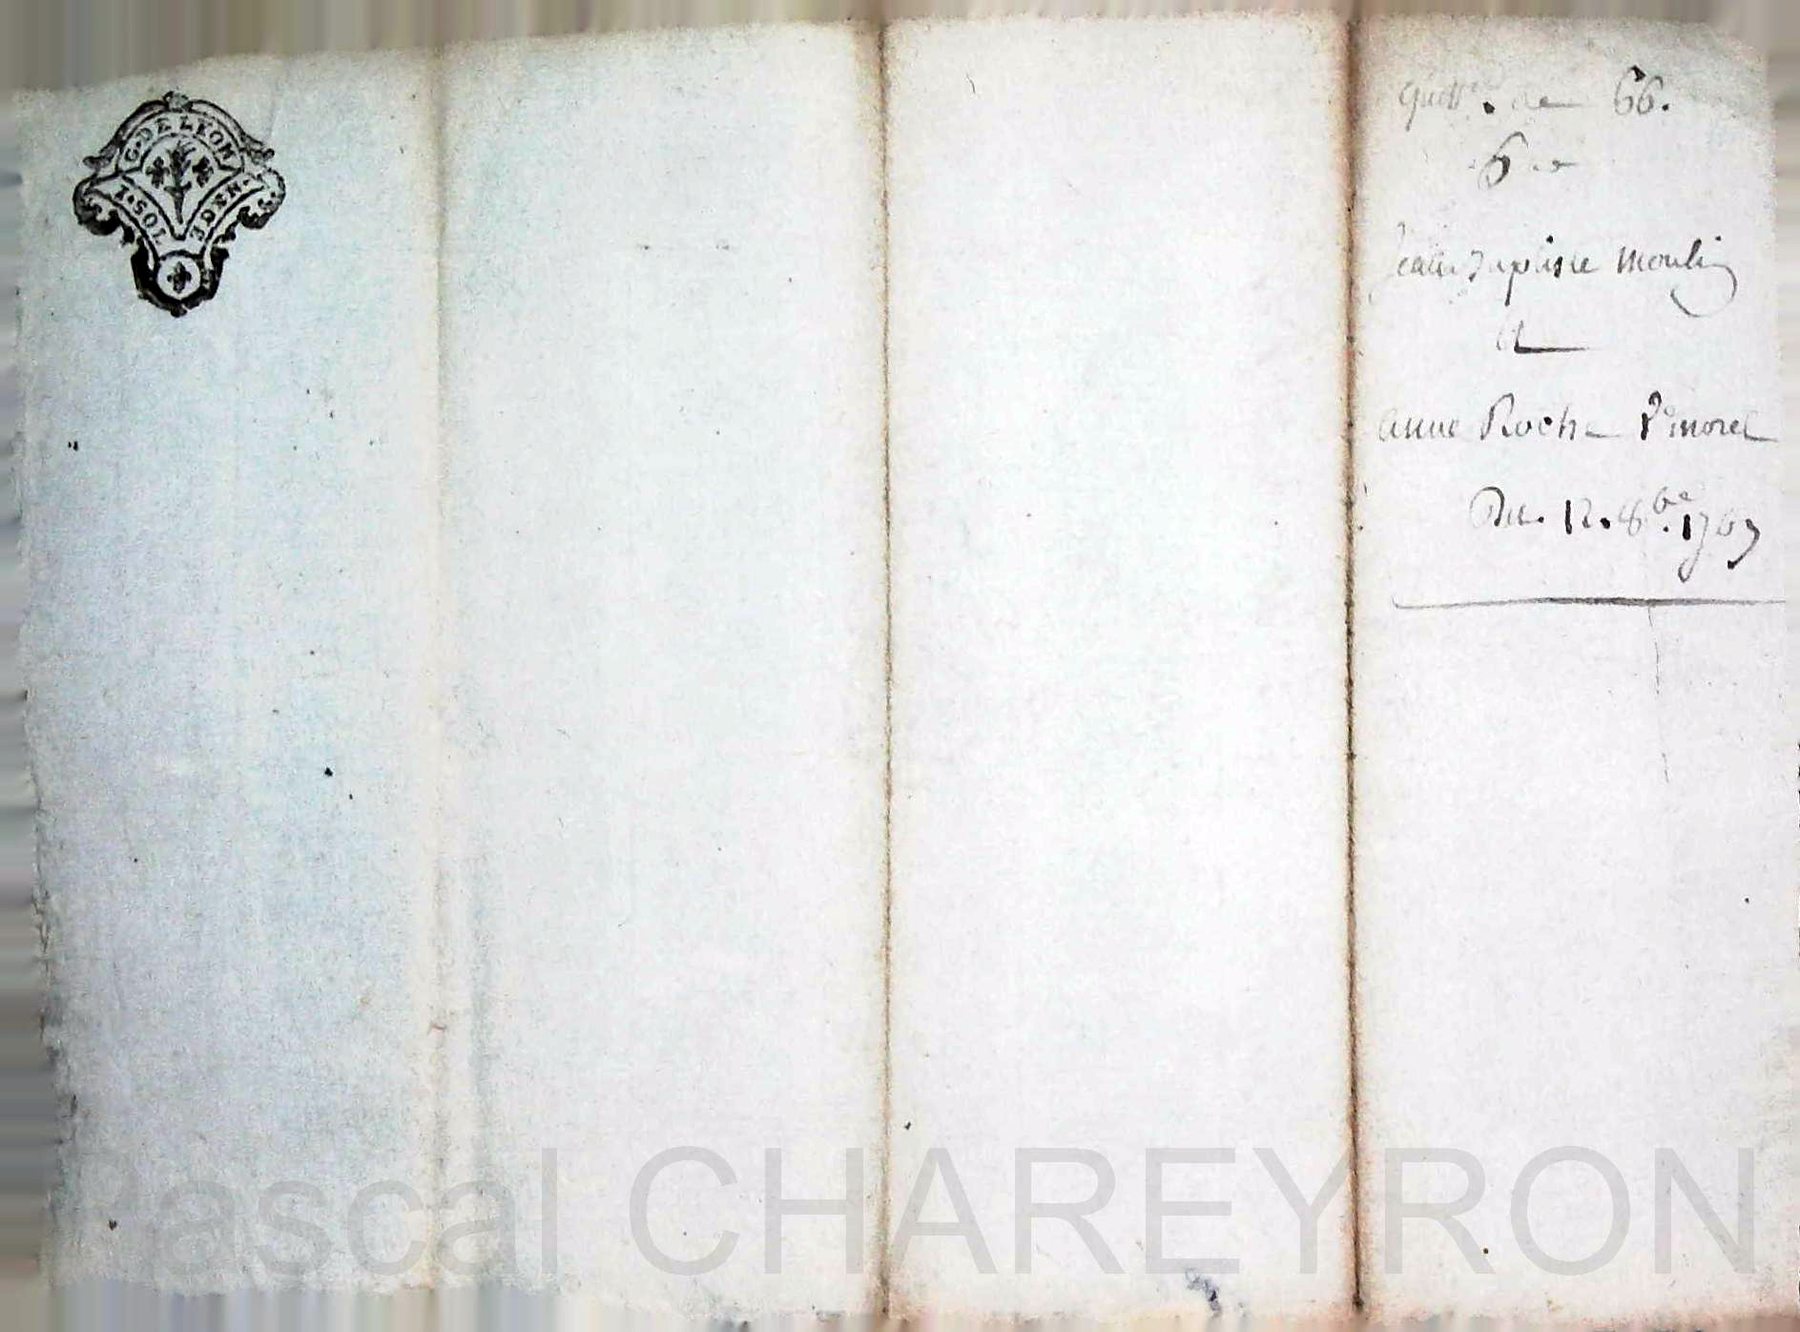 G. DE LEON
I. SOL
6 DEN.
Quitt.ce de 66.
6 d
Jean Baptiste Moulin
et
Anne Roche Vᵉ morel
Du. 12. 8bre. 1767
Pascal CHAREYRON